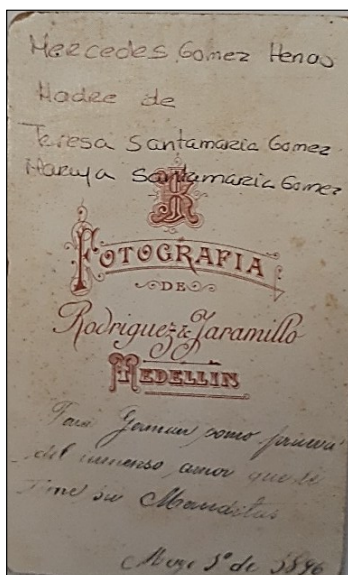 Mercedes Gomez Henao
Madre de
Teresa Santamaria Gomez
Maruja Santamaria Gomez
FOTOGRAFIA
DE
Rodriguez & Jaramillo
MEDELLIN
German, como
del inmenso amor que le
su
de 1896